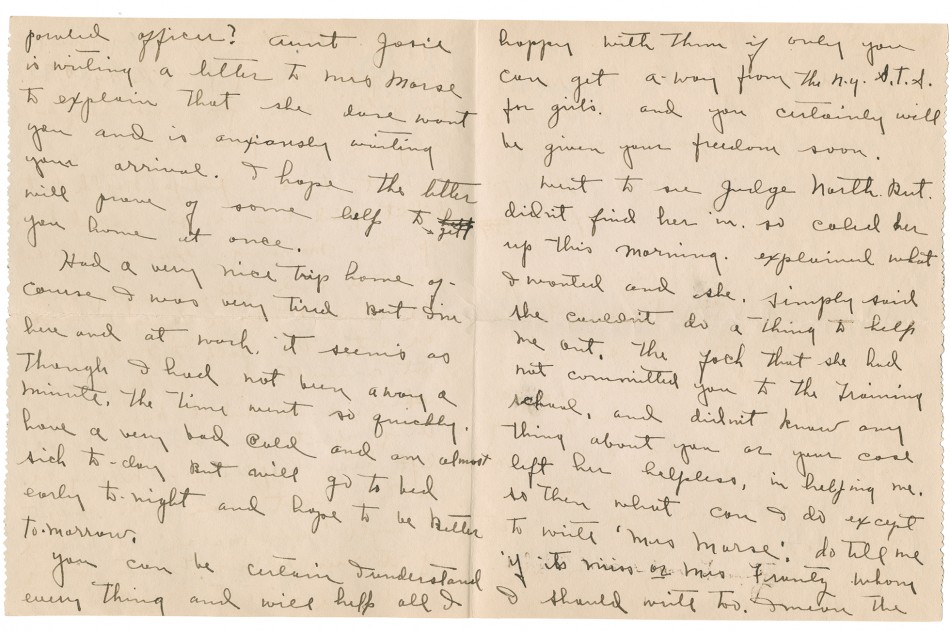 powled officer? Aunt Josie
is writing a letter to Mrs Morse
to explain that she dose want
you and is anxiously waiting
your arrival. I hope the letter
will prove of some help to gett
you home at once.
Had a very nice trip home of-
course I was very tired But I'm
here and at work. it seems as
though I had not been away a
minute, the time went so quickly.
have a very bad cold and am almost
sick to-day But will go to bed
early to-night and hope to be better
to-morrow.
You can be certain I understand
every thing and will help all I
happy with them if only you
can get a-way from the N.Y. S.T.S.
for girls. and you certainly will
be given your freedom soon.
Went to see Judge North. But.
didn't find her in. so caled her
up this morning. explained what
I wanted and she, simply said
she couldn't do a thing to help
me out. the fact that she had
not committed you to the Training
school, and didn't know any
thing about you or your case
left her helpless, in helping me.
so then what can I do except
to write "Mrs Morse". do tell me
if its miss or Mrs. Frantz whom
I should write too. I mean the